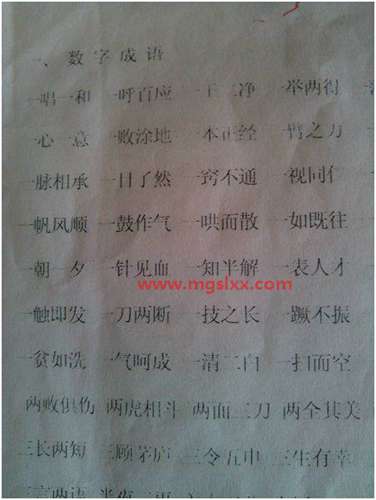 一、数字成语
一唱一和 一呼百应 一干二净 一举两得
一心一意 一败涂地 一本正经 一臂之力
一脉相承 一目了然 一窍不通 一视同仁
一帆风顺 一鼓作气 一哄而散 一如既往
一朝一夕 一针见血 一知半解 一表人才
www.mgslxx.com
一触即发 一刀两断 一技之长 一蹶不振
一贫如洗 一气呵成 一清二白 一扫而空
两败俱伤 两虎相斗 两面三刀 两全其美
三长两短 三顾茅庐 三令五申 三生有幸
三言两语